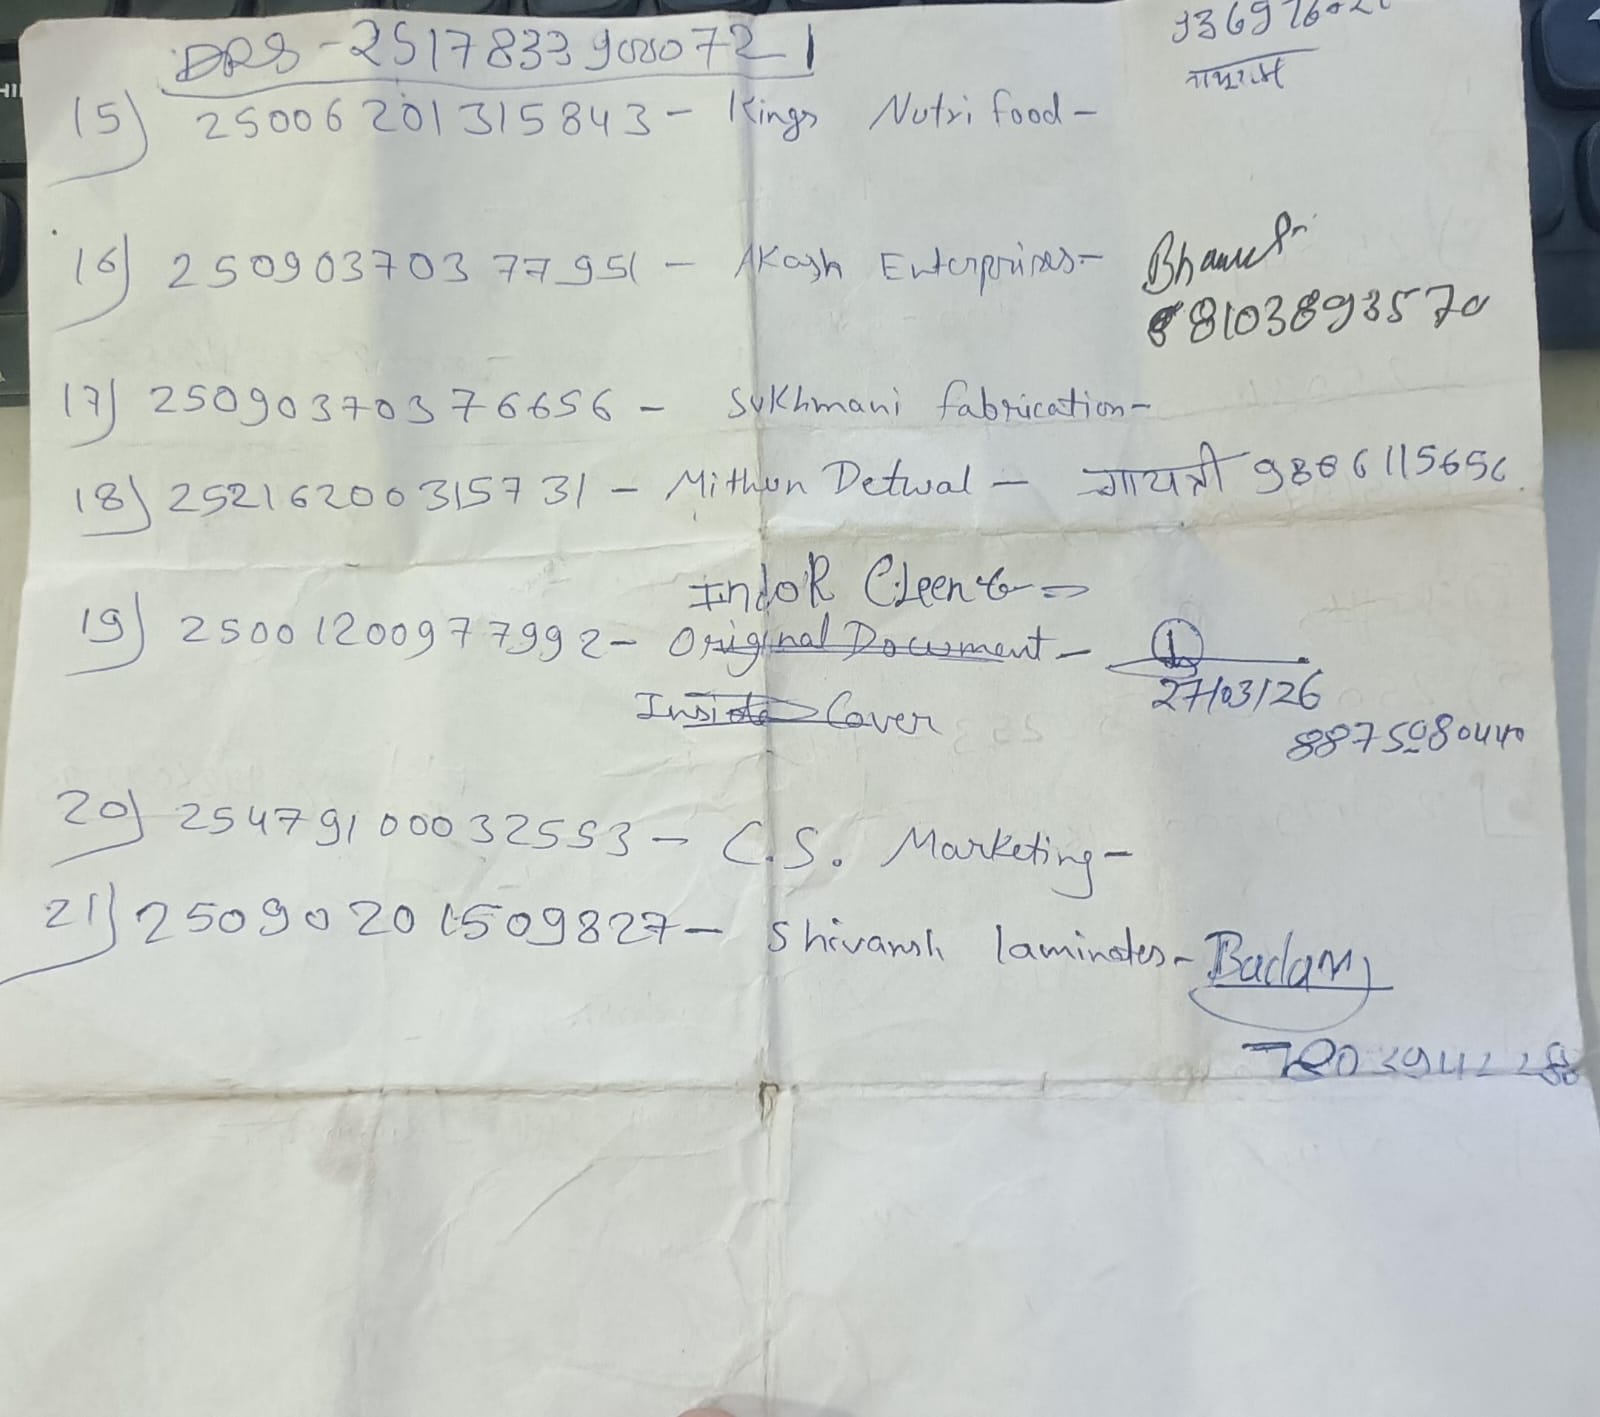 DRS - 25178339000721
15) 25006201315843 - Kings Nutri food -
16) 25090370377951 - Akash Enterprises -
8103893570
17) 25090370376656 - Sukhmani fabrication -
18) 25216200315731 - Mithun Detwal - गायत्री 9806115656
IndoR Cleent =
19) 25001200977992 - Original Document - 1
27/03/26
Inside Cover
8875080440
20) 25479100032553 - C.S. Marketing -
21) 25090201509827 - Shivansh laminates - Badam